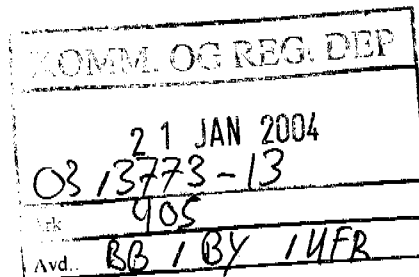 KOMM. OG REG. DEP
21 JAN 2004
03/3773-13
Ark 905
Avd.. BB / BY / UFR